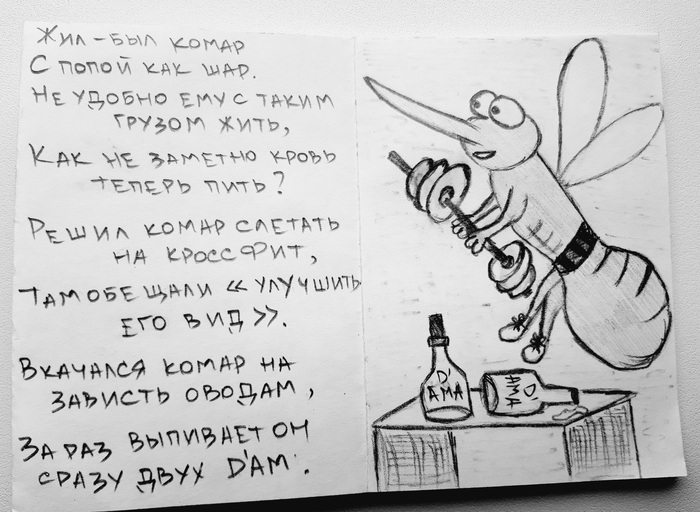 Жил-был комар
С попой как шар.
Не удобно ему с таким
грузом жить,
Как не заметно кровь
теперь пить?
Решил комар слетать
на кроссфит,
Там обещали «улучшить
его вид».
Вкачался комар на
зависть оводам,
За раз выпивает он
сразу двух D'ам.
D'
AMA
D'
AMA